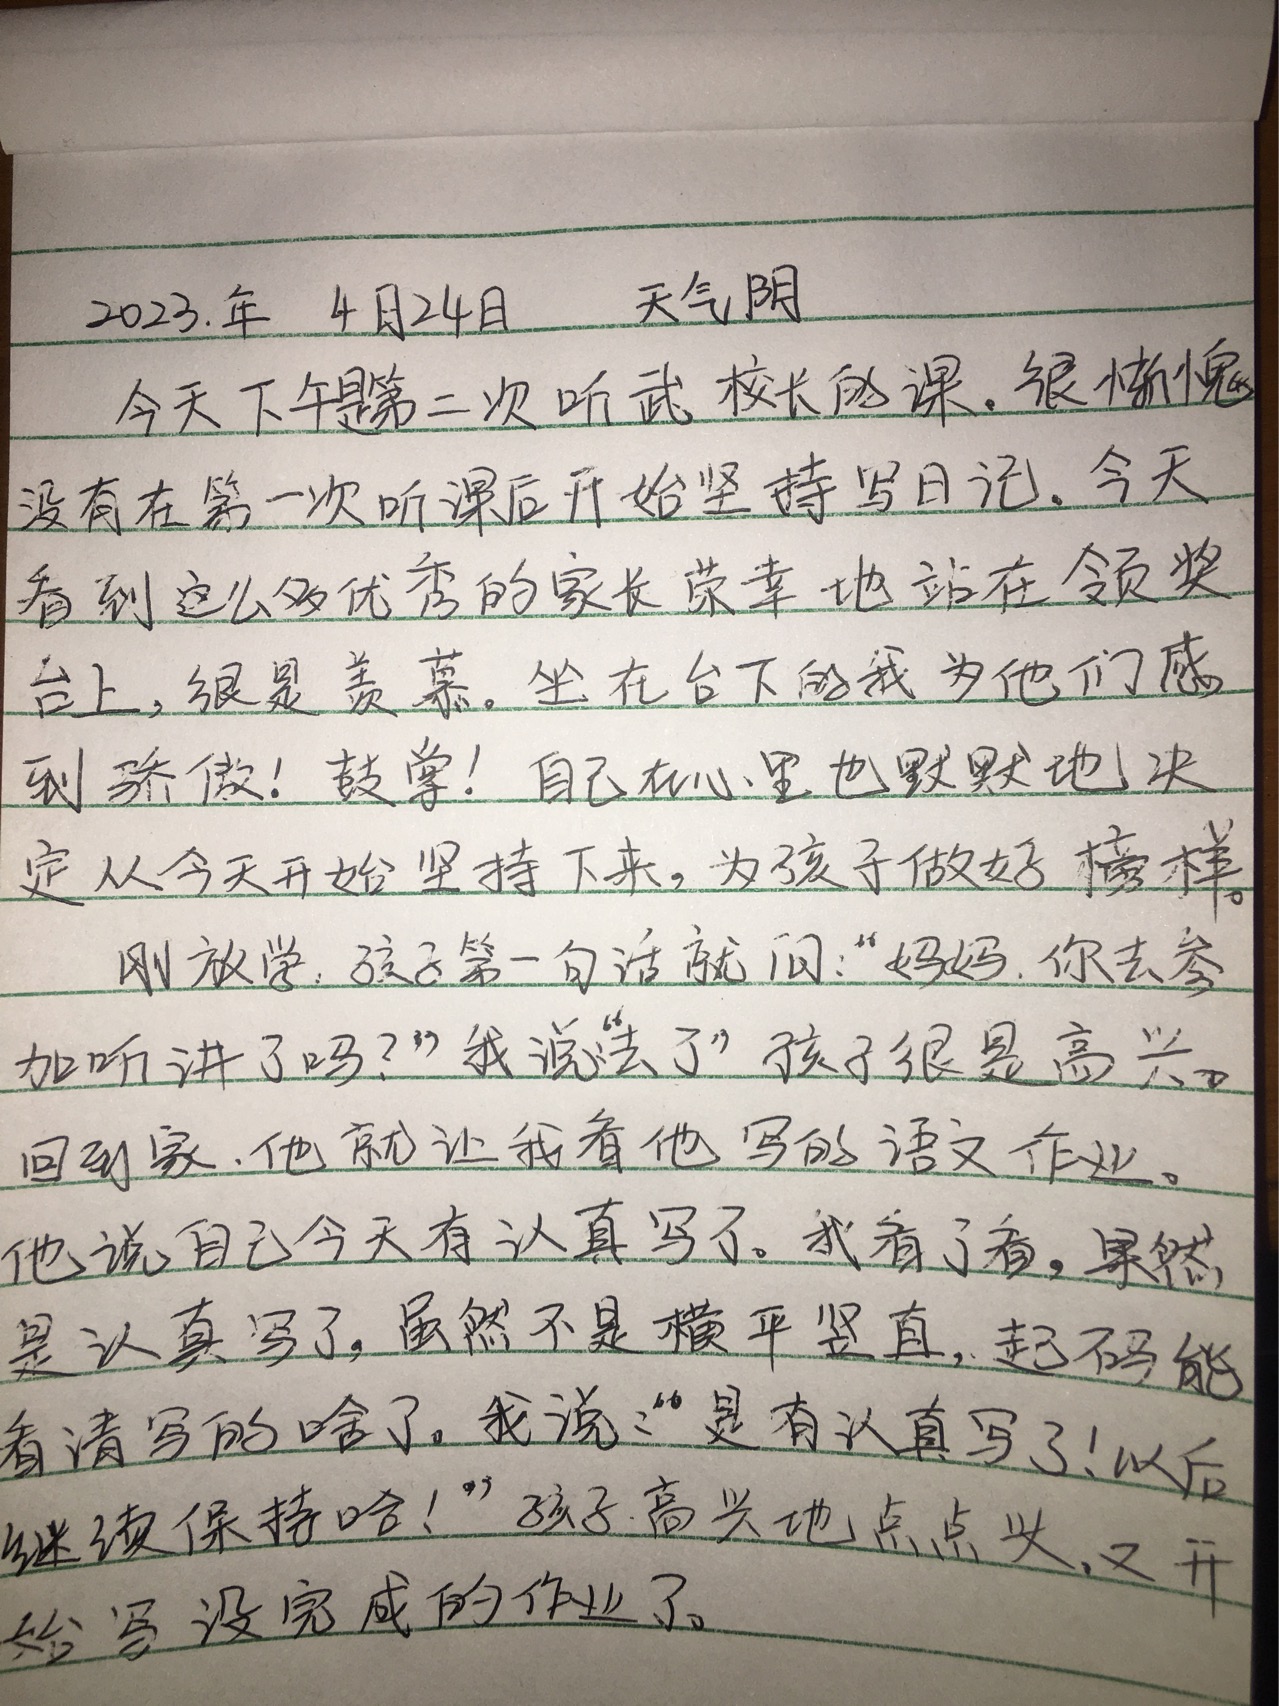 2023.年 4月24日 天气阴
今天下午是第二次听武校长的课。很惭愧
没有在第一次听课后开始坚持写日记。今天
看到这么多优秀的家长荣幸地站在领奖
台上，很是羡慕。坐在台下的我为他们感
到骄傲！鼓掌！自己在心里也默默地决
定从今天开始坚持下来，为孩子做好榜样。
刚放学，孩子第一句话就问：“妈妈，你去参
加听讲了吗？”我说“去了”孩子很是高兴。
回到家，他就让我看他写的语文作业。
他说自己今天有认真写了。我看了看，果然
是认真写了，虽然不是横平竖直，起码能
看清写的啥了。我说：“是有认真写了！以后
继续保持哈！”孩子高兴地点点头，又开
始写没完成的作业了。